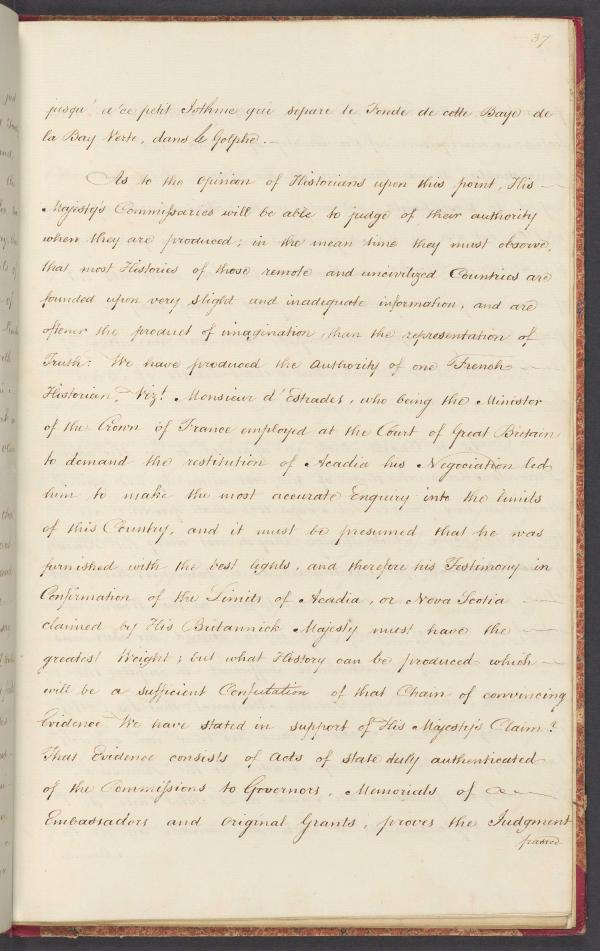 37
jusqu' a' ce petit Isthme qui separe le Fonde de cette Baye de
la Bay Verte, dans le Golphe. —
As to the Opinion of Historians upon this point, His —
Majesty's Commissaries will be able to judge of their authority
when they are produced; in the mean time they must observe,
that most Histories of those remote and uncivilized Countries are
founded upon very slight and inadequate information, and are
oftener the product of imagination, than the representation of
Truth: We have produced the Authority of one French —
Historian, Vizt. Monsieur d'Estrades, who being the Minister
of the Crown of France employed at the Court of Great Britain
to demand the restitution of Acadia his Negociation led
him to make the most accurate Enquiry into the limits
of this Country, and it must be presumed that he was
furnished with the best lights, and therefore his Testimony in
Confirmation of the Limits of Acadia, or Nova Scotia —
claimed by His Britannick Majesty must have the —
greatest Weight; but what History can be produced which —
will be a sufficient Confutation of that Chain of convincing
Evidence We have stated in support of His Majesty's Claim?
That Evidence consists of Acts of state duly authenticated
of the Commissions to Governors, Memorials of —
Embassadors and Original Grants, proves the Judgment
passed